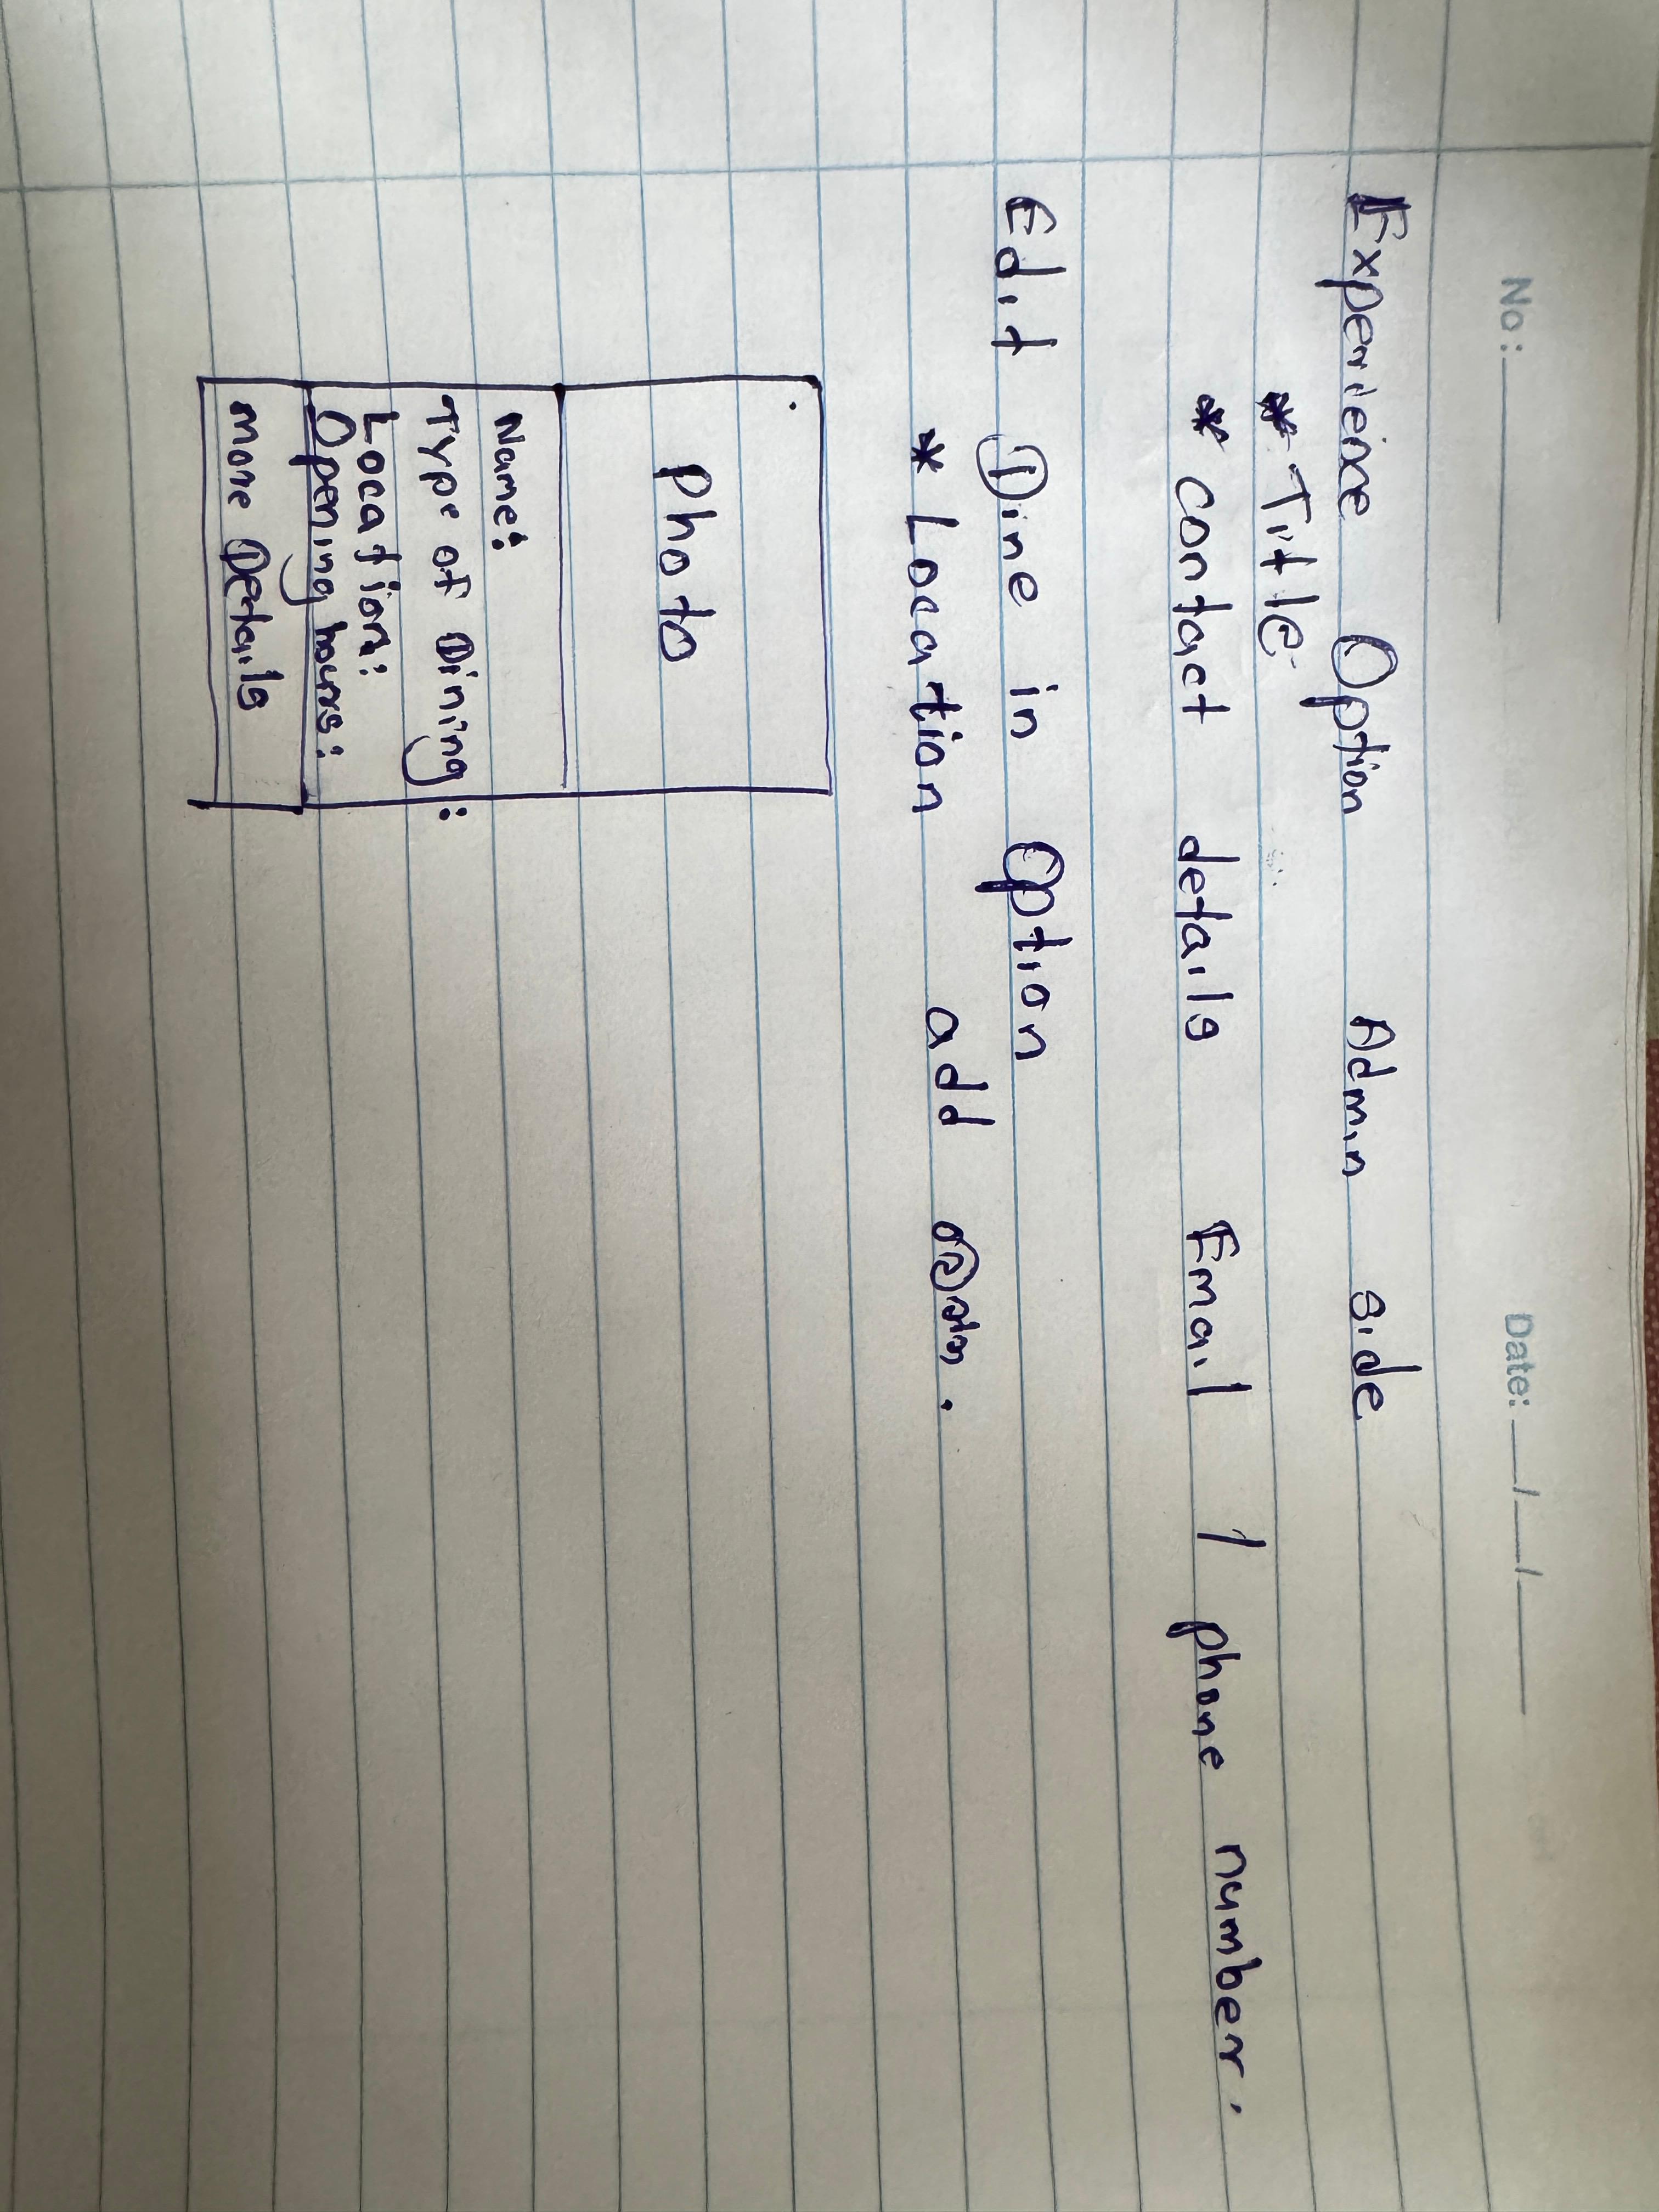 No: Date: __/__/____
Experience Option Admin side
* Title
* contact details Email / phone number.
Edit Dine in Option
* Location add වෙන්න.
Photo
Name:
Type of Dining:
Location:
Opening hours:
more Details